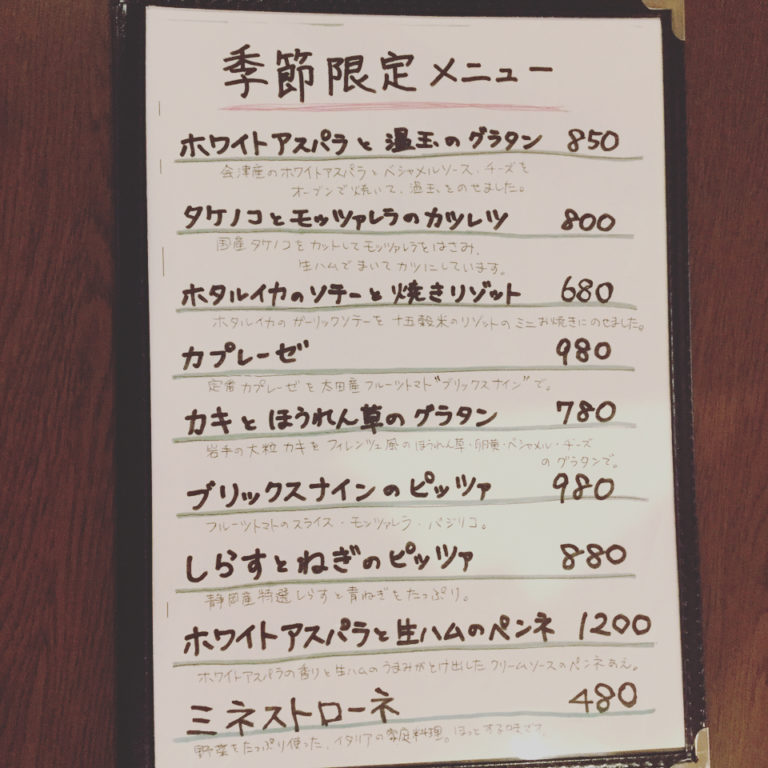 季節限定メニュー
ホワイトアスパラと温玉のグラタン 850
会津産のホワイトアスパラとベシャメルソース・チーズを
オーブンで焼いて、温玉をのせました。
タケノコとモッツァレラのカツレツ 800
国産タケノコをカットしてモッツァレラをはさみ、
生ハムでまいてカツにしています。
ホタルイカのソテーと焼きリゾット 680
ホタルイカのガーリックソテーを十五穀米のリゾットのミニお焼きにのせました。
カプレーゼ 980
定番カプレーゼを太田産フルーツトマト"ブリックスナイン"で。
カキとほうれん草のグラタン 780
岩手の大粒カキをフィレンツェ風のほうれん草・卵黄・ベシャメル・チーズ
のグラタンで。
ブリックスナインのピッツァ 980
フルーツトマトのスライス・モッツァレラ・バジリコ。
しらすとねぎのピッツァ 880
静岡産特選しらすと青ねぎをたっぷり。
ホワイトアスパラと生ハムのペンネ 1200
ホワイトアスパラの香りと生ハムのうまみがとけ出したクリームソースのペンネあえ。
ミネストローネ 480
野菜をたっぷり使った、イタリアの家庭料理。ほっとする味です。